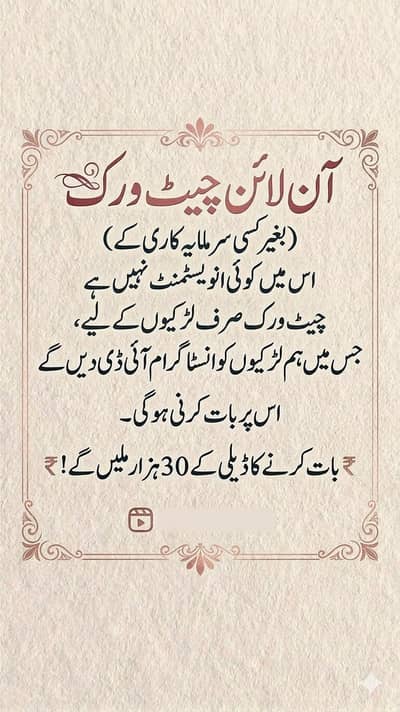 آن لائن چیٹ ورک
(بغیر کسی سرمایہ کاری کے)
اس میں کوئی انویسٹمنٹ نہیں ہے
چیٹ ورک صرف لڑکیوں کے لیے،
جس میں ہم لڑکیوں کو انسٹاگرام آئی ڈی دیں گے
اس پر بات کرنی ہوگی۔
₹بات کرنے کا ڈیلی کے 30 ہزار ملیں گے!₹